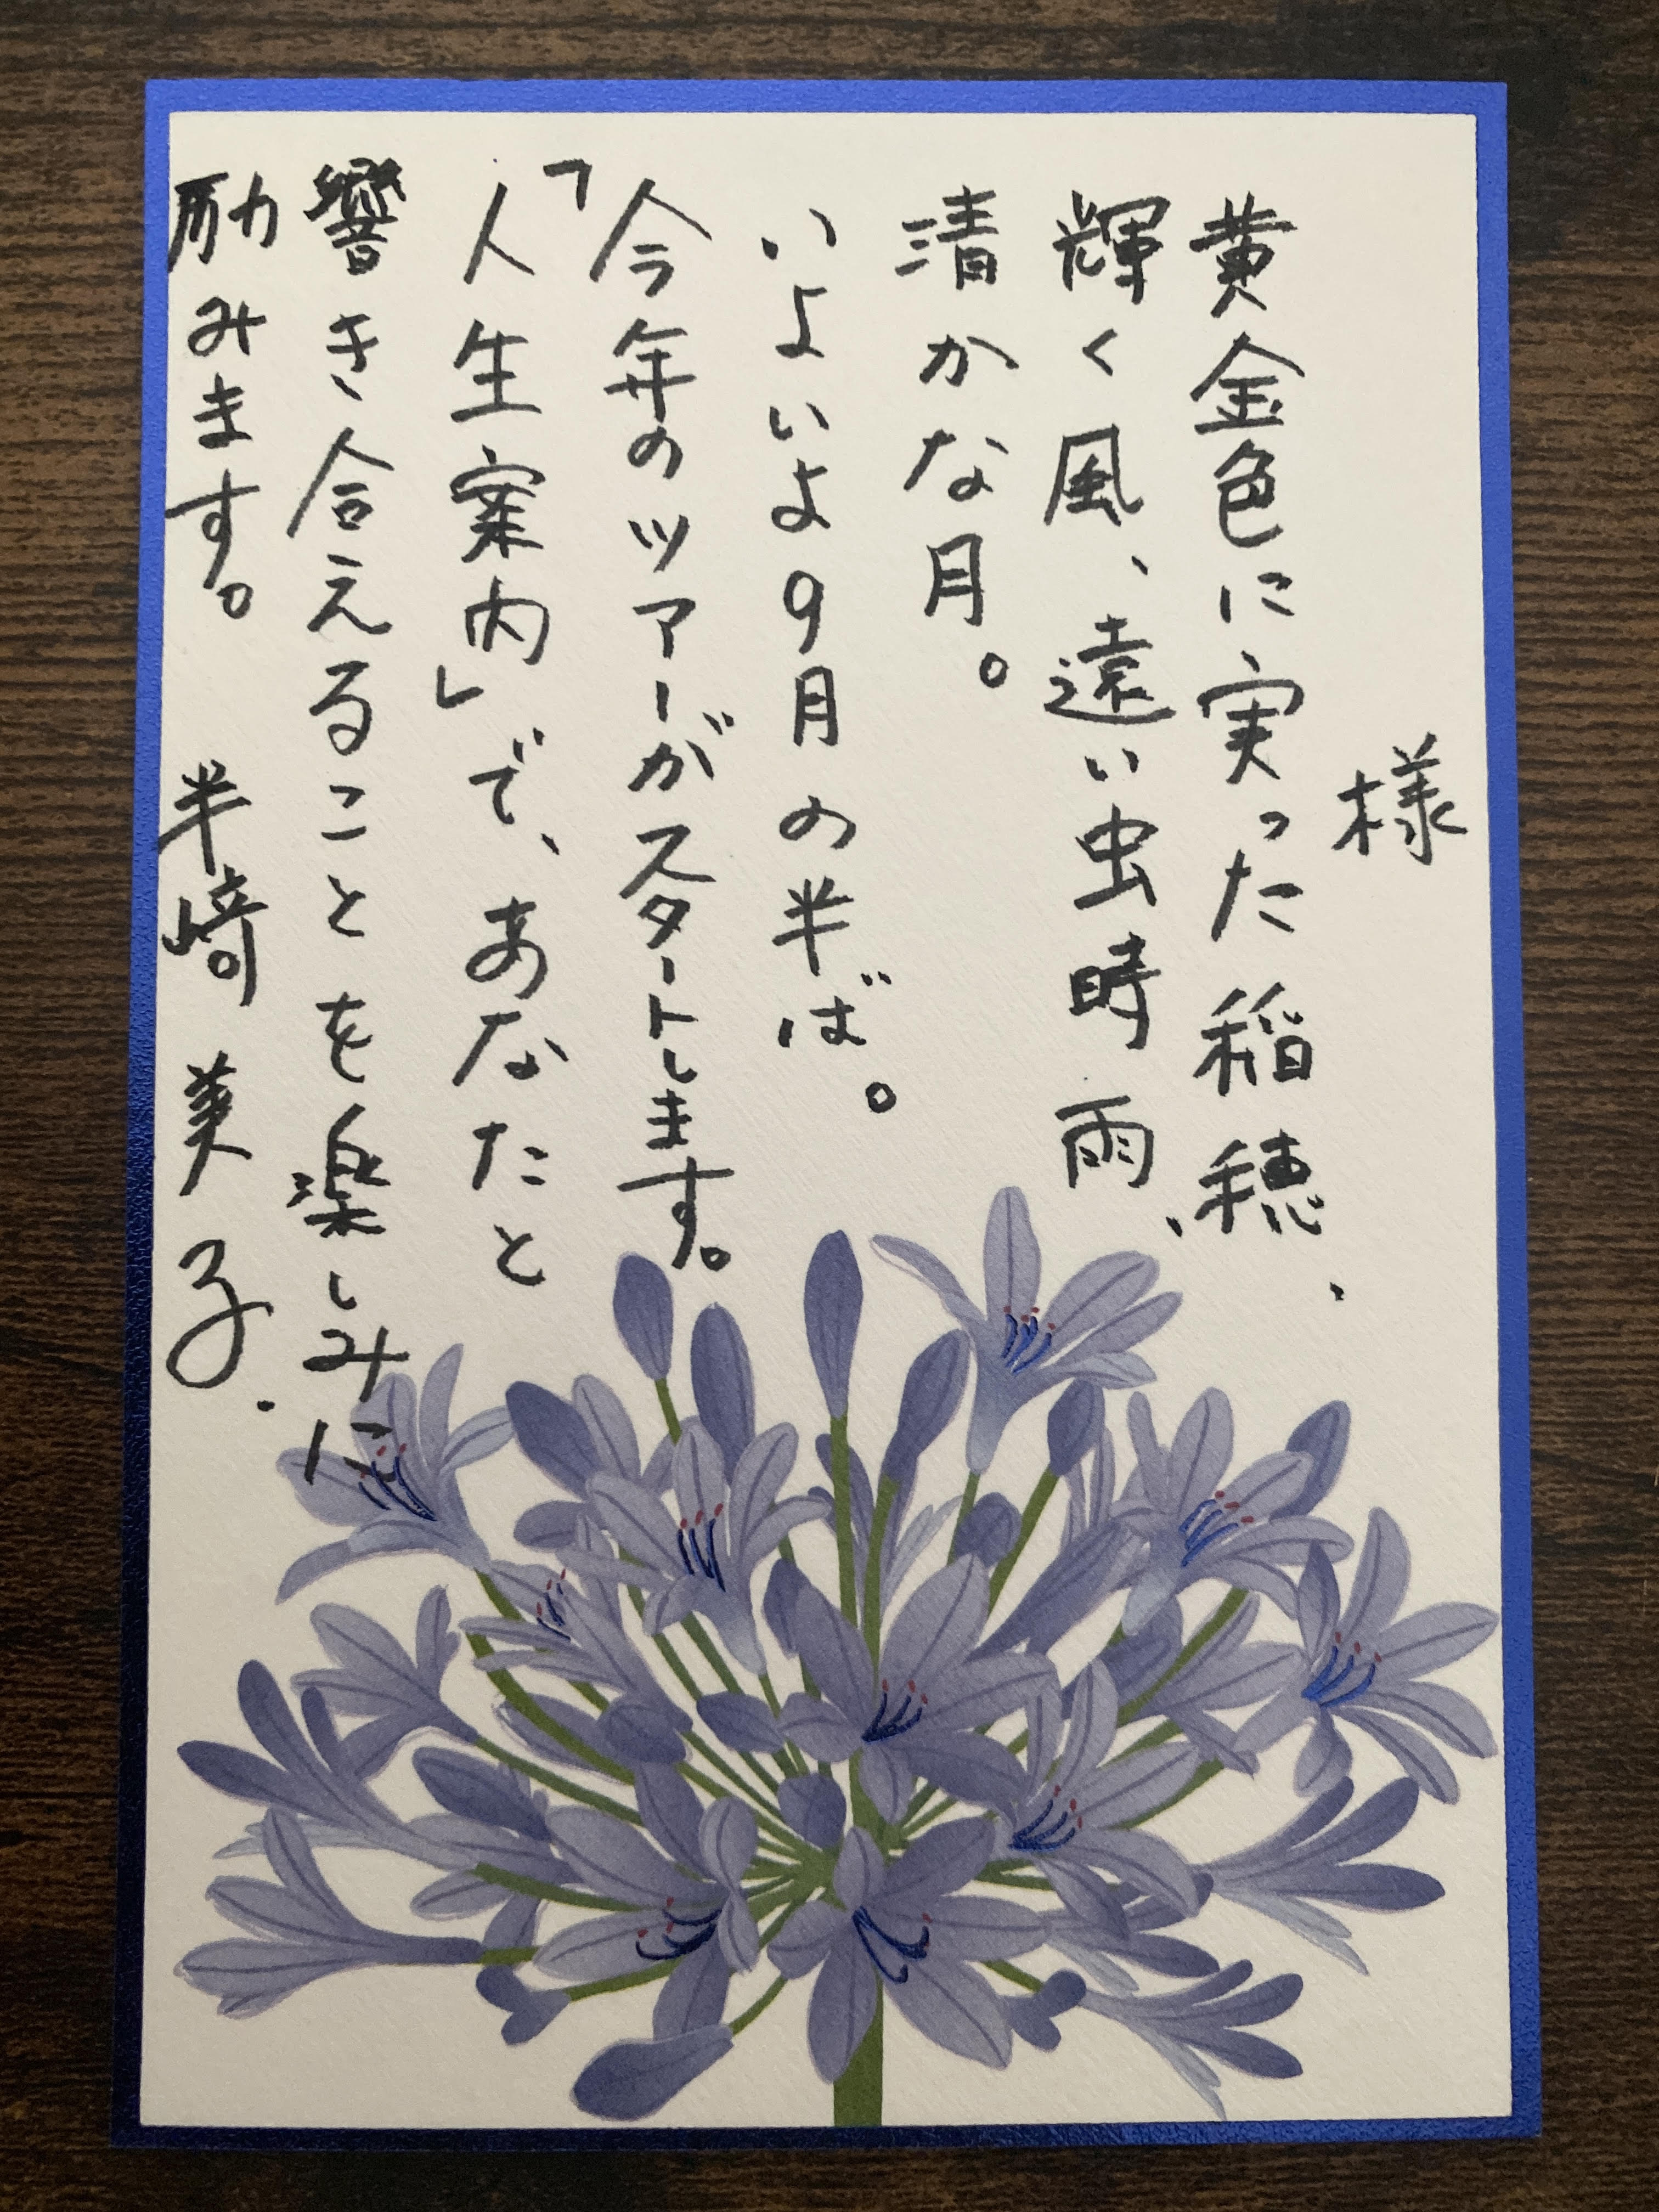 様
黄金色に実った稲穂、
輝く風、遠い虫時雨、
清かな月。
いよいよ9月の半ば。
今年のツアーがスタートします。
「人生案内」で、あなたと
響き合えることを楽しみに
励みます。 半﨑 美子.